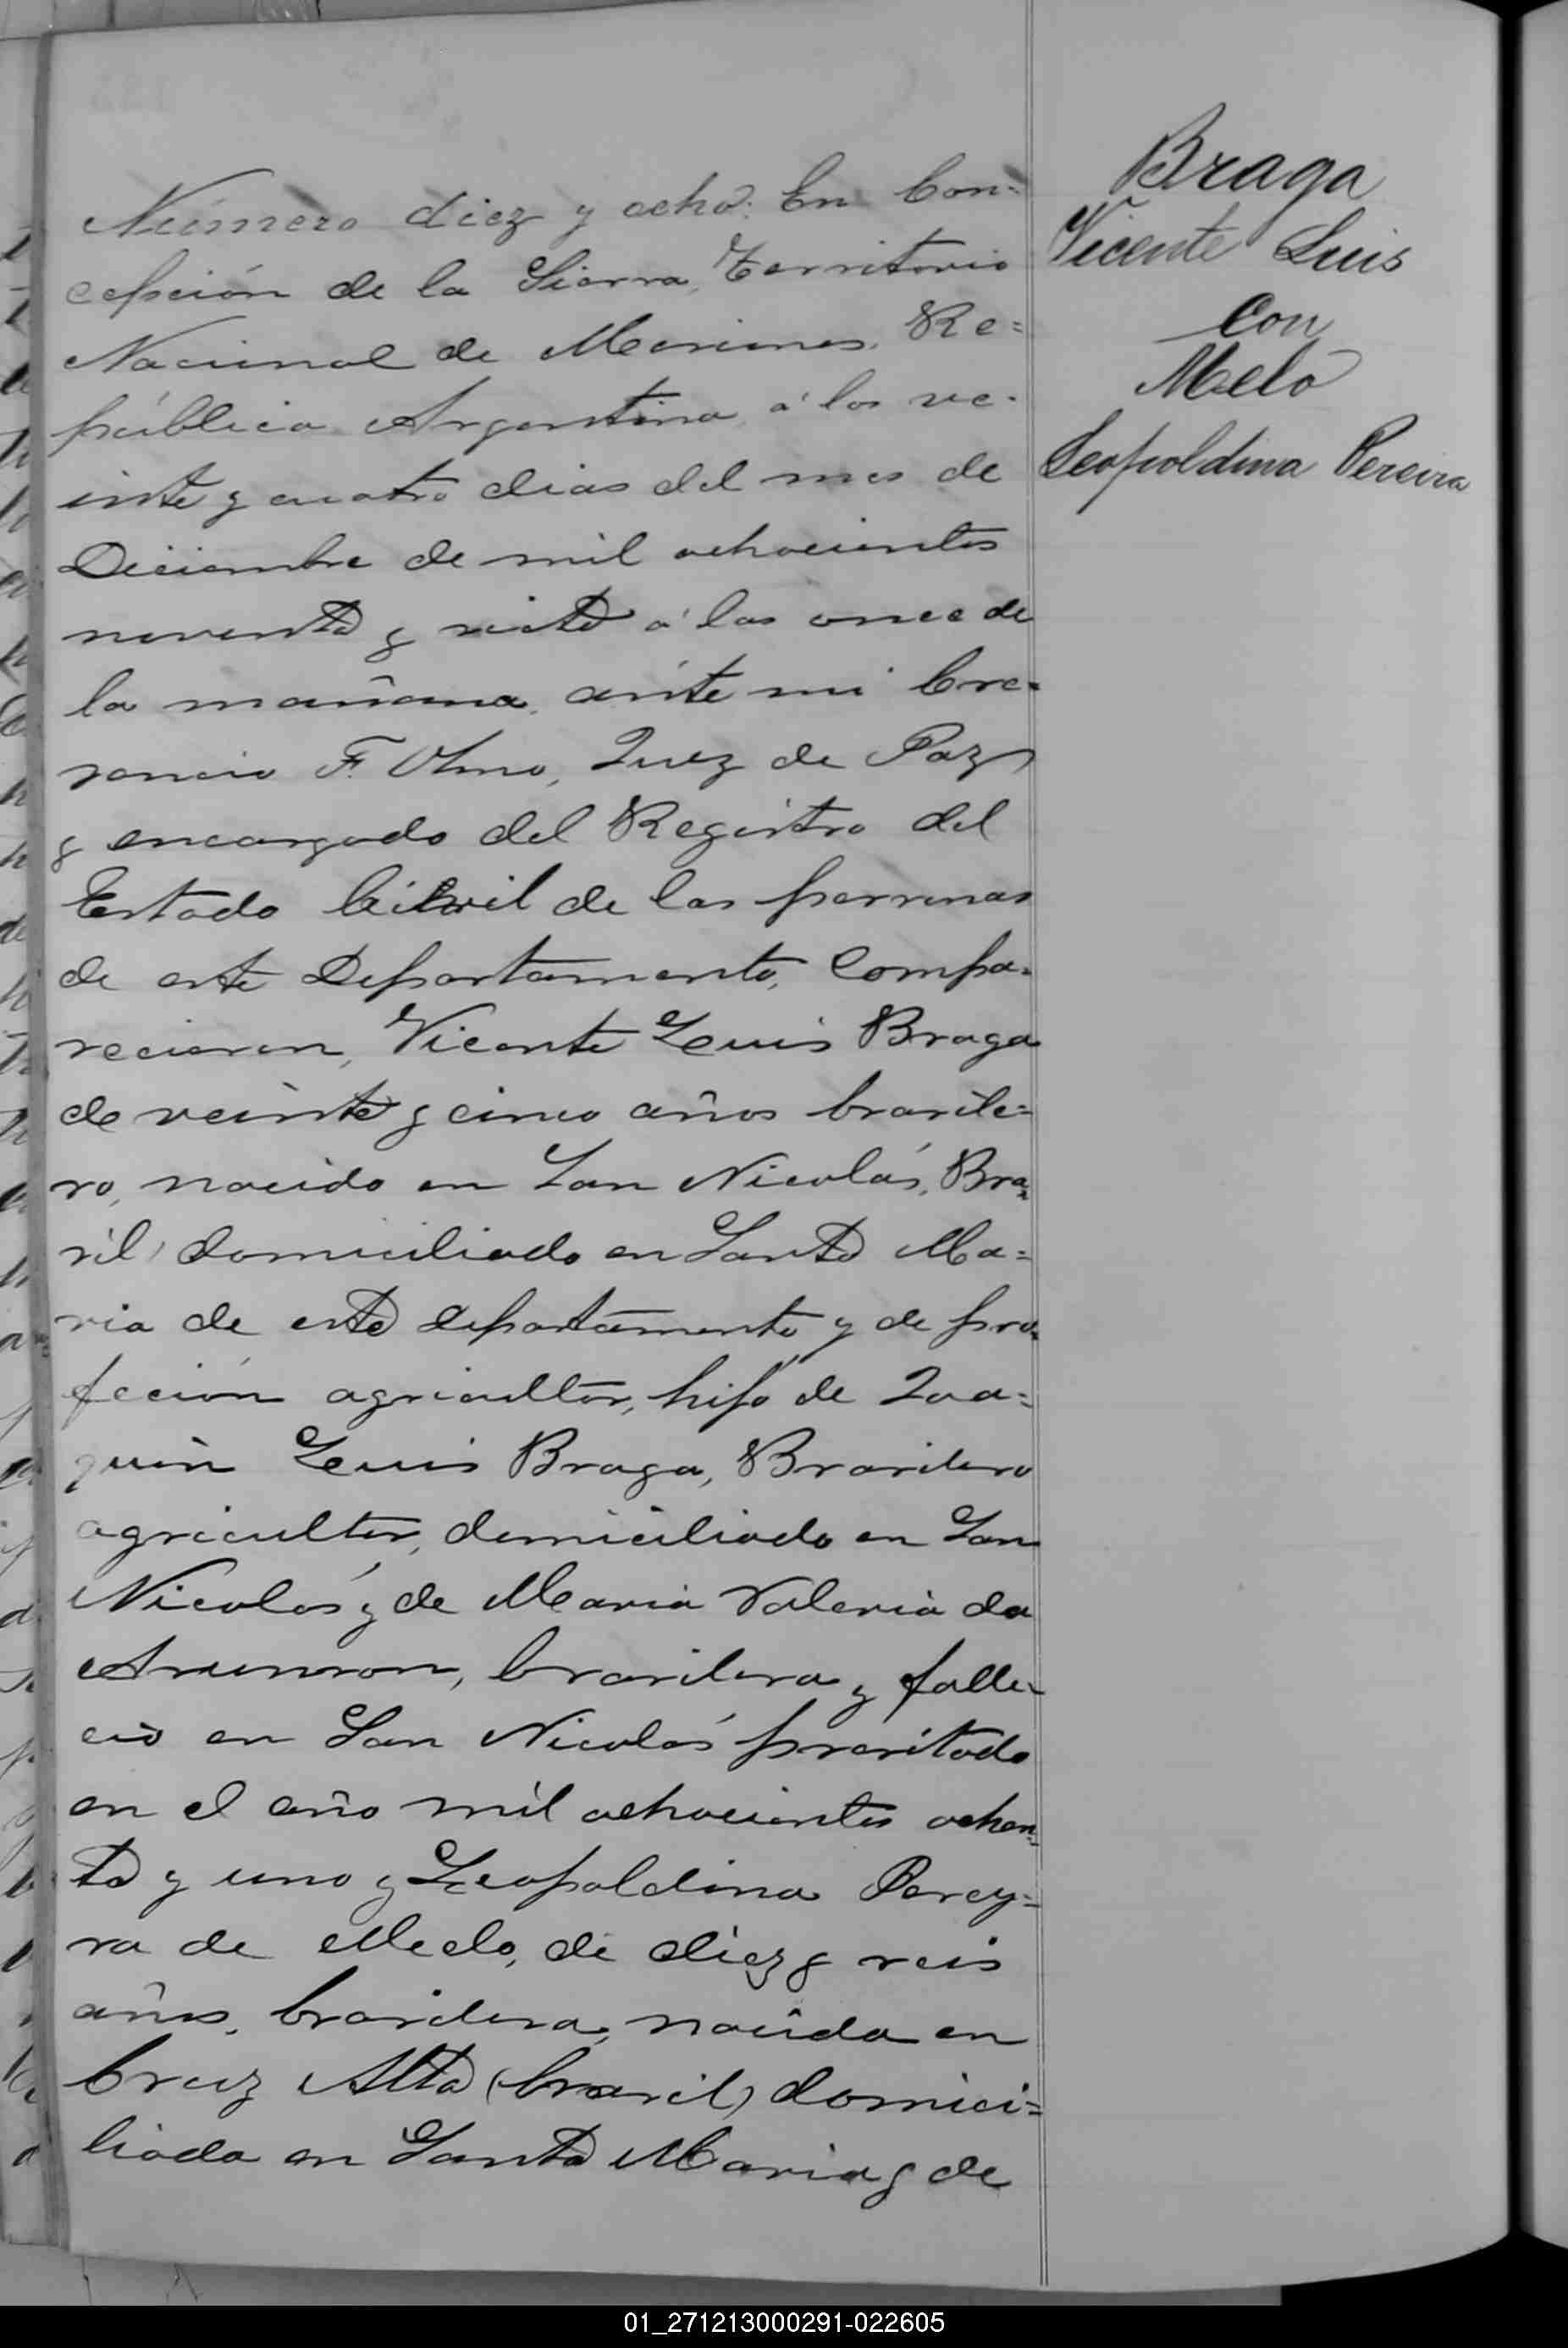 Número diez y ocho: En Con-
cepción de la Sierra, Territorio
Nacional de Misiones, Re=
pública Argentina, á los ve-
inte y cuatro dias del mes de
Diciembre de mil ochocientos
noventa y siete á las once de
la mañana, ante mi Cre-
sencio F. Olmo, Juez de Paz
y encargado del Registro del
Estado Civil de las personas
de este Departamento, Compa-
recieron, Vicente Luis Braga
de veinte y cinco años brasile=
ro, nacido en San Nicolás, Bra-
sil, domiciliado en Santa Ma=
ria de este departamento y de pro-
feción agricultor, hijo de Joa=
quin Luis Braga, Brasilero
agricultor, domiciliado en San
Nicolás y de Maria Valeria da
brasilera y falle-
ció en San Nicolás presitado
en el año mil ochocientos ochen-
ta y uno y Leopoldina Perey=
ra de Melo, de diez y seis
años, brasilera, nacida en
Cruz Alta (brasil) domici=
liada en Santa Maria y de
Braga
Vicente Luis
Con
Melo
Leopoldina Pereira
01_271213000291-022605